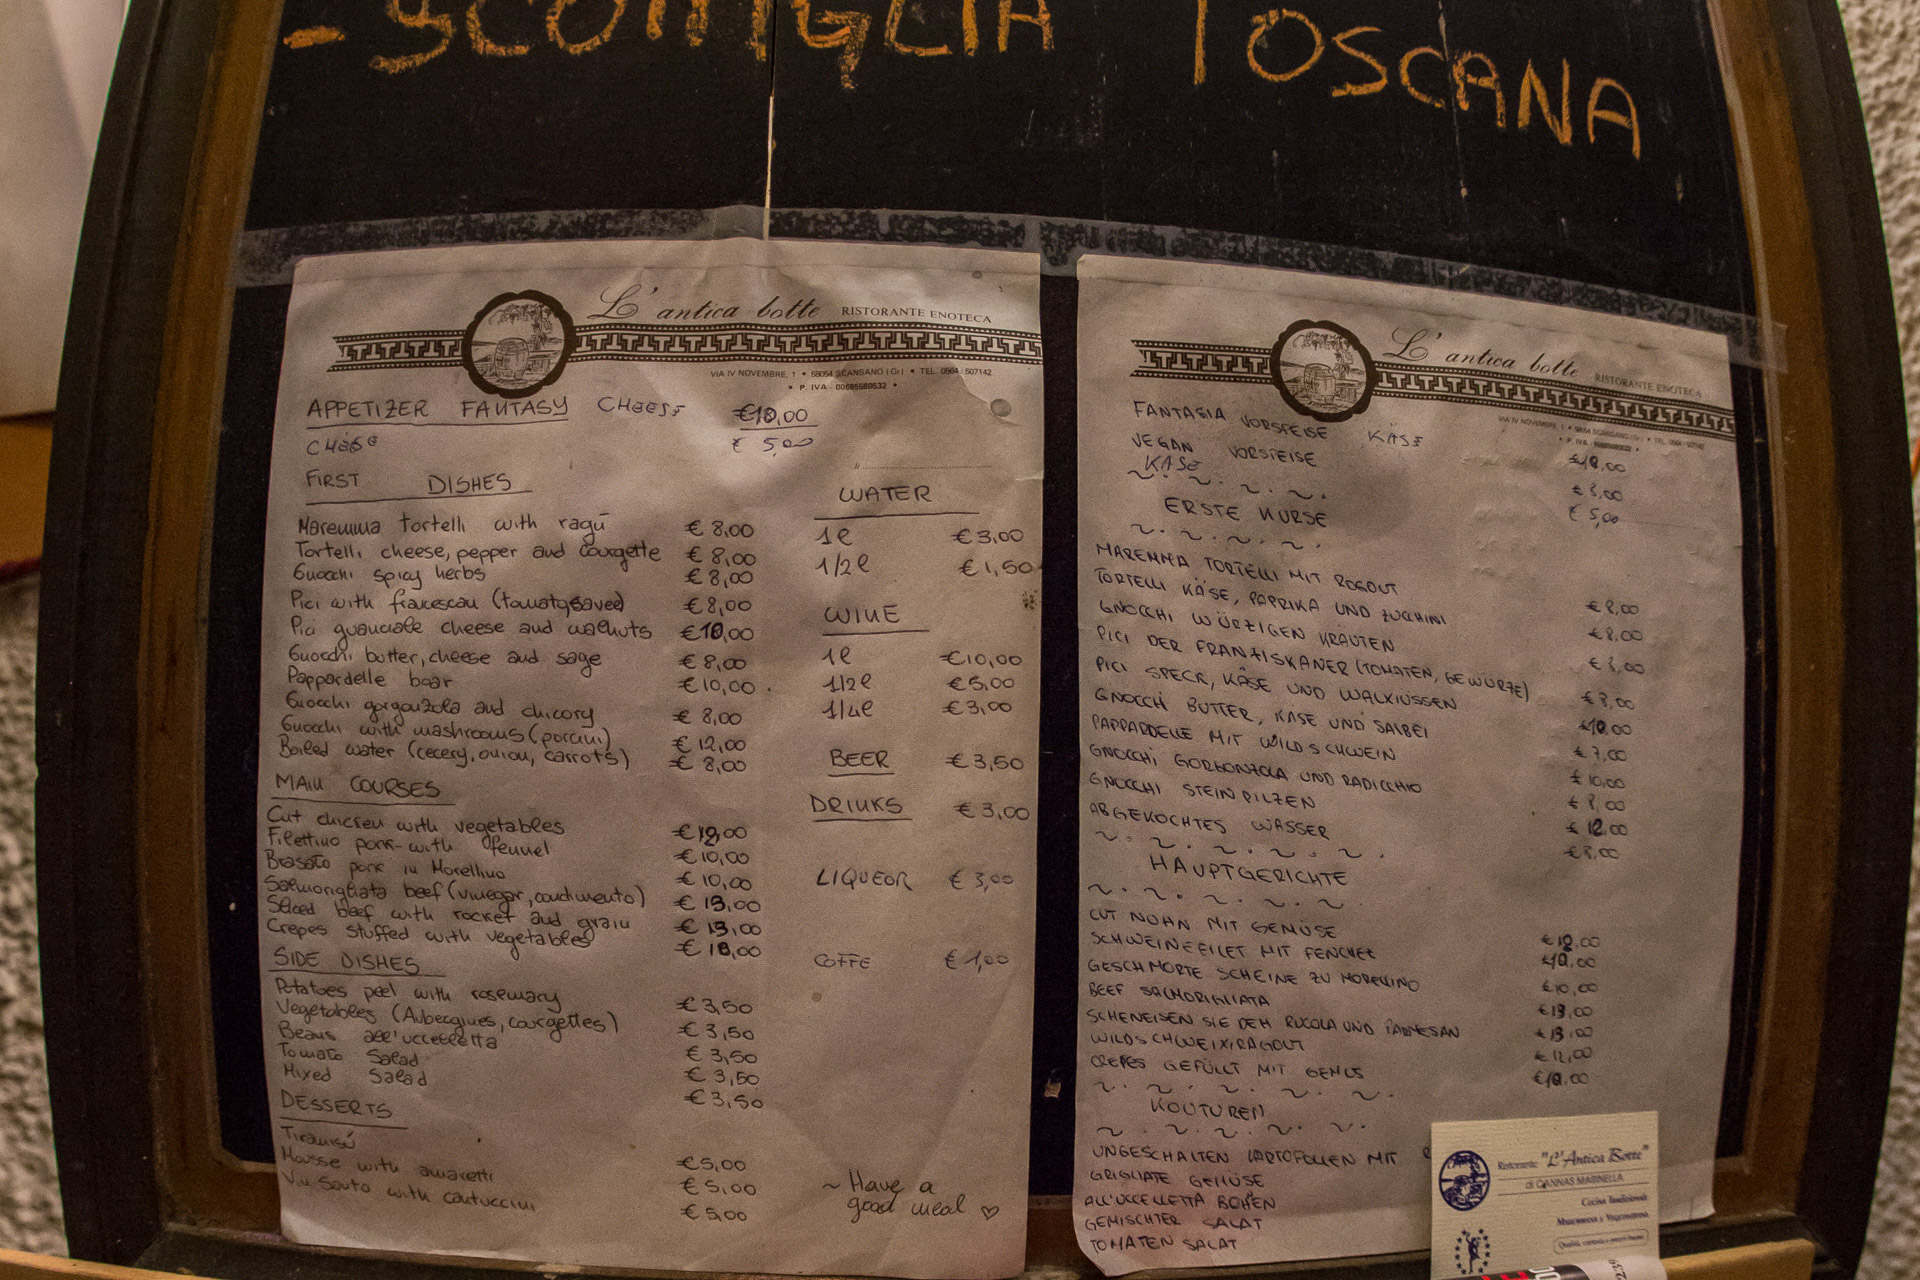 - SCOTTIGLIA TOSCANA
L'antica botte RISTORANTE ENOTECA
VIA IV NOVEMBRE, 1 • 58054 SCANSANO (Gr) • TEL. 0564 / 507142
• P. IVA - 00685580532 •
APPETIZER FANTASY CHEESE €10,00
CHEESE € 5,00
FIRST DISHES
Maremma tortelli with ragù €8,00
Tortelli cheese, pepper and courgette €8,00
Gnocchi spicy herbs €8,00
Pici with francescan (tomato, €8,00
Pici guanciale cheese and walnuts €10,00
Gnocchi butter, cheese and sage €8,00
Pappardelle boar €10,00
Gnocchi gorgonzola and chicory €8,00
Gnocchi with mashrooms (porcini) €12,00
Boiled water (cecery, onion, carrots) €8,00
MAIN COURSES
Cut chicken with vegetables
Filettino pork with fennel €10,00
Brasato pork in Morellino €10,00
Salmorigliata beef (vinegar, condimento) €13,00
Sliced beef with rocket and grain €13,00
Crepes stuffed with vegetables €10,00
SIDE DISHES
Potatoes peel with rosemary €3,50
Vegetables (Aubergines, courgettes) €3,50
Beans all'uccelletta €3,50
Tomato Salad €3,50
Mixed Salad €3,50
DESSERTS
Tiramisù €5,00
Mousse with amaretti €5,00
Vin Santo with cantuccini €5,00
WATER
1l €3,00
1/2l €1,50
WINE
1l €10,00
1/2l €5,00
1/4l €3,00
BEER €3,50
DRINKS €3,00
LIQUEOR €3,00
COFFE €1,00
~ Have a
good meal ♡
L'antica botte RISTORANTE ENOTECA
VIA IV NOVEMBRE, 1 • 58054 SCANSANO (Gr) • TEL.
• P. IVA
FANTASIA VORSPEISE KÄSE €10,00
VEGAN VORSPEISE €8,00
KÄSE €5,00
~ . ~ . ~ . ~ .
ERSTE KURSE
~ . ~ . ~ . ~ .
MAREMMA TORTELLI MIT ROGOUT €8,00
TORTELLI KÄSE, PAPRIKA UND ZUCCHINI €8,00
GNOCCHI WÜRZIGEN KRÄUTEN €8,00
PICI DER FRANZISKANER (TOMATEN, GEWÜRZE) €8,00
PICI SPECK, KÄSE UND WALNÜSSEN €10,00
GNOCCHI BUTTER, KÄSE UND SALBEI €7,00
PAPPARDELLE MIT WILDSCHWEIN €10,00
GNOCCHI GORGONZOLA UND RADICCHIO €8,00
GNOCCHI STEINPILZEN €12,00
ABGEKOCHTES WASSER €8,00
~ . ~ . ~ . ~ . ~ .
HAUPTGERICHTE
~ . ~ . ~ . ~ . ~
CUT HOHN MIT GEMÜSE
SCHWEINEFILET MIT FENCHEL €10,00
GESCHMORTE SCHEINE ZU MORELLINO €10,00
BEEF SALMORIGLIATA €13,00
SCHENEISEN SIE DEM RUCOLA UND PARMESAN €13,00
WILDSCHWEINRAGOUT €12,00
CREPES GEFÜLLT MIT GEMUS €10,00
~ . ~ . ~ . ~ . ~ .
KOUTUREN
~ . ~ . ~ . ~ . ~ .
UNGESCHALTEN KARTOFOLLEN MIT R
GRIGLIATE GEMÜSE
ALL'UCCELLETTA BOHEN
GEMISCHTER SALAT
TOMATEN SALAT
Ristorante "L'Antica Botte"
di CANNAS MARINELLA
Cucina Tradizionale
Maremmana e Vegetariana